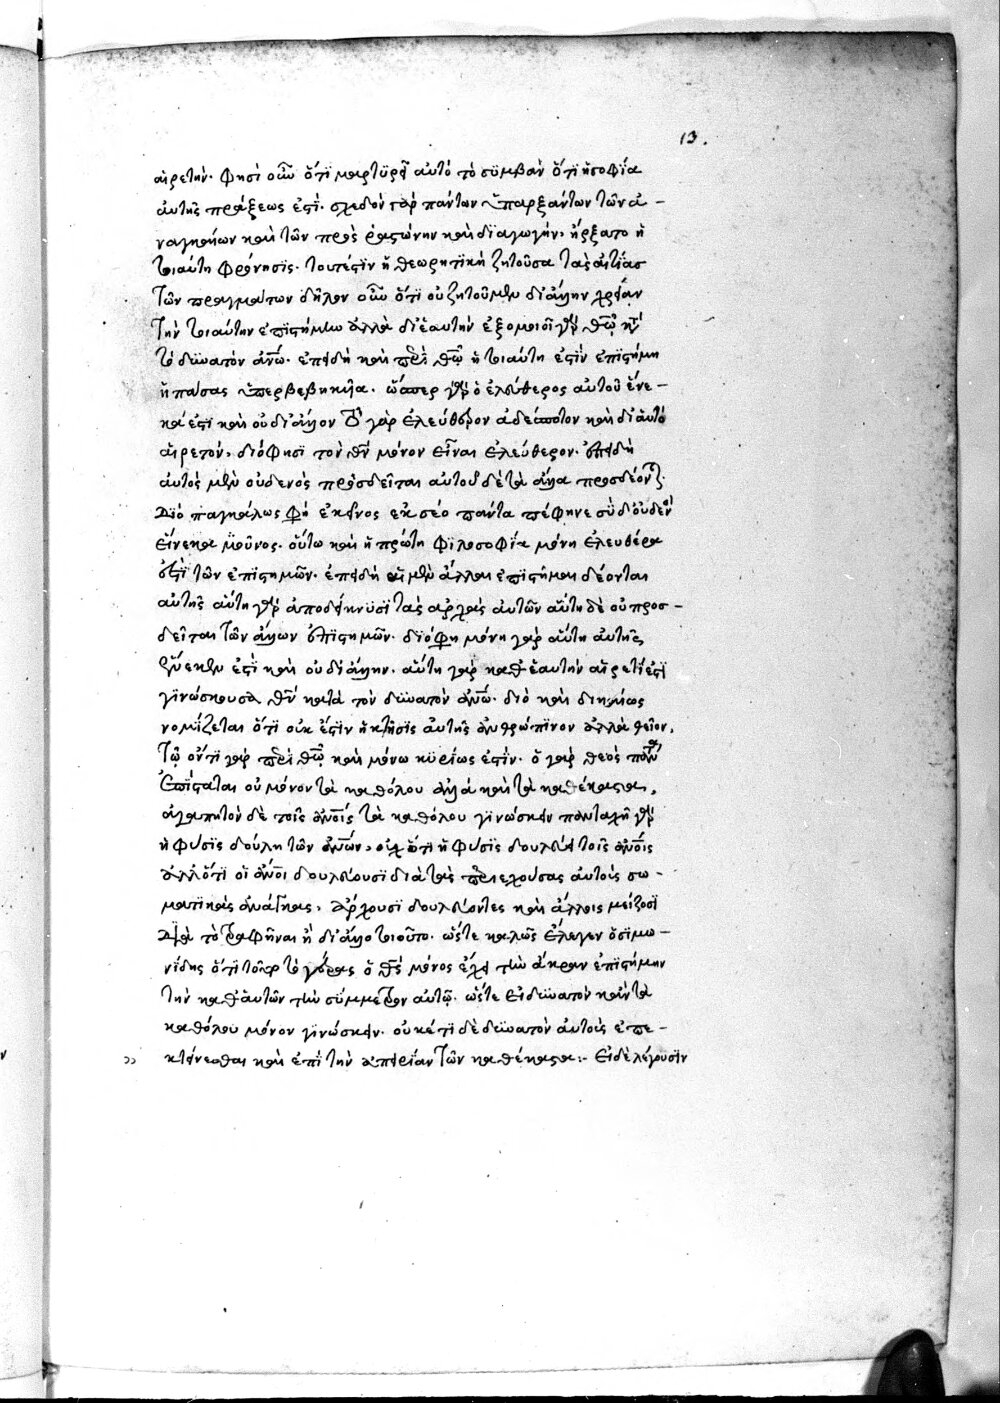 13.
αἱρετήν. φησὶ οὖν ὅτι μαρτυρεῖ αὐτὸ τὸ συμβὰν ὅτι ἡ σοφία
αὐτῆς πράξεως ἐστί. σχεδὸν γὰρ πάντων ὑπαρξάντων τῶν ἀ-
ναγκαίων καὶ τῶν πρὸς ῥαστώνην καὶ διαγωγήν, ἤρξατο ἡ
τοιαύτη φρόνησις. τουτέστιν ἡ θεωρητικὴ ζητοῦσα τὰς αἰτίας
τῶν πραγμάτων δῆλον οὖν ὅτι οὐ ζητοῦμεν δι' ἄλλην χρείαν
τὴν τοιαύτην ἐπιστήμην ἀλλὰ δι' ἑαυτὴν ἐξομοιοῖ γὰρ θεῷ κατὰ
τὸ δυνατὸν ἀνῶ. ἐπειδὴ καὶ περὶ θεοῦ ἡ τοιαύτη ἐστὶν ἐπιστήμη
ἡ πάσας ὑπερβεβηκυῖα. ὥσπερ γὰρ ὁ ἐλεύθερος αὐτοῦ ἕνε-
κά ἐστι καὶ οὐ δι' ἄλλον τὸ γὰρ ἐλεύθερον ἀδέσποτον καὶ δι' αὑτὸ
αἱρετόν, διό φησι τὸν θν μόνον εἶναι ἐλεύθερον. ἐπειδὴ
αὐτὸς μὲν οὐδενὸς προσδεῖται αὐτοῦ δὲ τὰ ἄλλα προσδέονται.
Διὸ παγκάλως φη ἐκεῖνος ἐκ σέο πάντα πέφηνε σὺ δ' οὐδενὸς
εἵνεκα μοῦνος. οὕτω καὶ ἡ πρώτη φιλοσοφία μόνη ἐλευθέρα
ἐστὶ τῶν ἐπιστημῶν. ἐπειδὴ αἱ μὲν ἄλλαι ἐπιστῆμαι δέονται
αὐτῆς αὕτη γὰρ ἀποδείκνυσι τὰς ἀρχὰς αὐτῶν αὕτη δὲ οὐ προσ-
δεῖται τῶν ἄλλων ἐπιστημῶν. διό φη μόνη γὰρ αὕτη αὑτῆς
ἕνεκεν ἐστὶ καὶ οὐ δι' ἄλλην. αὕτη γὰρ καθ' ἑαυτὴν αἱρετή ἐστι
γινώσκουσα θν κατὰ τὸν δυνατὸν ἀνω. διὸ καὶ δικαίως
νομίζεται ὅτι οὐκ ἔστιν ἡ κτῆσις αὐτῆς ἀνθρώπινον ἀλλὰ θεῖον.
τῷ ὄντι γὰρ περὶ θεοῦ καὶ μόνω κυρίως ἐστίν. ὁ γὰρ θεὸς πάντα
ἐπίσταται οὐ μόνον τὰ καθόλου ἀλλὰ καὶ τὰ καθέκαστα.
ἀγαπητὸν δὲ τοῖς ἀνοις τὰ καθόλου γινώσκειν πανταχῆ γὰρ
ἡ φύσις δούλη τῶν ἀνων, οὐχ ὅτι ἡ φύσις δουλεύει τοῖς ἀνοις
ἀλλ' ὅτι οἱ ἀνοι δουλεύουσι διὰ τὰς περιεχούσας αὐτοὺς σω-
ματικὰς ἀνάγκας, ἄρχουσι δουλεύοντες καὶ ἄλλοις μείζοσι
Διὰ τὸ τραφῆναι ἢ δι' ἄλλο τιοῦτο. ὥστε καλῶς ἔλεγεν ὁ σιμω-
νίδης ὅτι τοῦτο τὸ γέρας ὁ θς μόνος ἔχει τὴν ἄκραν ἐπιστήμην
τὴν καθ' αὑτὸν τὴν σύμμετρον αὐτῷ. ὥστε εἰ δυνατὸν καὶ τὰ
καθόλου μόνον γινώσκειν. οὐκέτι δὲ δυνατὸν αὐτοὺς ἐπε-
κτείνεσθαι καὶ ἐπὶ τὴν ἀπειρίαν τῶν καθέκαστα:- Εἰ δὲ λέγουσιν